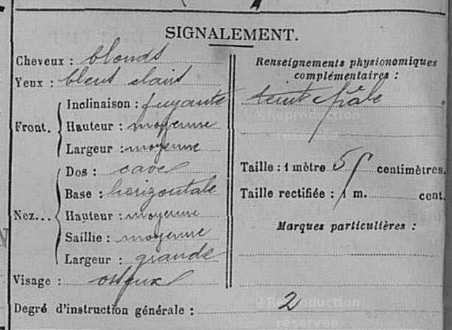 SIGNALEMENT.
Cheveux : blonds
Yeux : bleus clairs
Front.
Inclinaison : fuyante
Hauteur : moyenne
Largeur : moyenne
Nez...
Dos : cave
Base : horizontale
Hauteur : moyenne
Saillie : moyenne
Largeur : grande
Visage : osseux
Renseignements physionomiques
complémentaires :
teint pâle
Taille : 1 mètre centimètres.
Taille rectifiée : 1 m. cent.
Marques particulières :
Degré d'instruction générale : 2
Reproduction
Reproduction
réservée